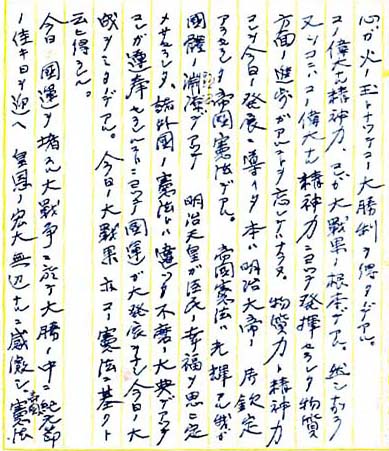 心ガ火ノ玉トナッテコノ大勝利ヲ得タデアル。
コノ偉大ナル精神力、之ガ大戦果ノ根本デアル。然シナガラ
又ソコニハコノ偉大ナル精神力ニヨッテ発揮セラレタ物質
方面ノ進歩ガアルコトヲ忘レテハナラヌ。物質力ト精神力
コノ今日ノ発展ニ導イタ本ハ明治大帝ノ御欽定
アラセラレタ帝国憲法デアル。帝国憲法ハ光輝アル我ガ
国体ノ淵源デアッテ 明治天皇ガ臣民ノ幸福ヲ思ヒ定
メサセラレタ、諸外国ノ憲法トハ違ッタ不磨ノ大典デアッテ
之ガ遵奉セラレルコトニヨッテ国運ガ大発展ヲナシ今日ノ大
成ヲミタデアル。今日ノ大戦果亦コノ憲法ニ基クト
云ヒ得ラレル。
今日 国運ヲ堵スル大戦争ニ於テ大勝ノ中ニ紀元節
ノ佳キ日ヲ迎ヘ 皇恩ノ宏大無辺ナルニ感激シ、憲法